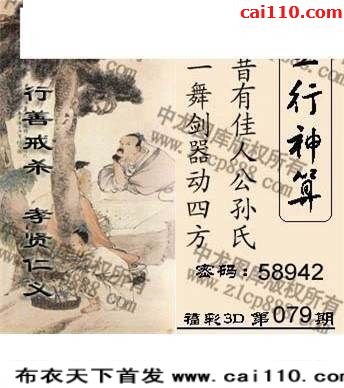 cai110.com
行神算
昔有佳人公孙氏
一舞剑器动四方
行善戒杀 孝贤仁义
中龙图库版权所有
密码：58942
福彩3D 第079期
布衣天下首发 www.cai110.com